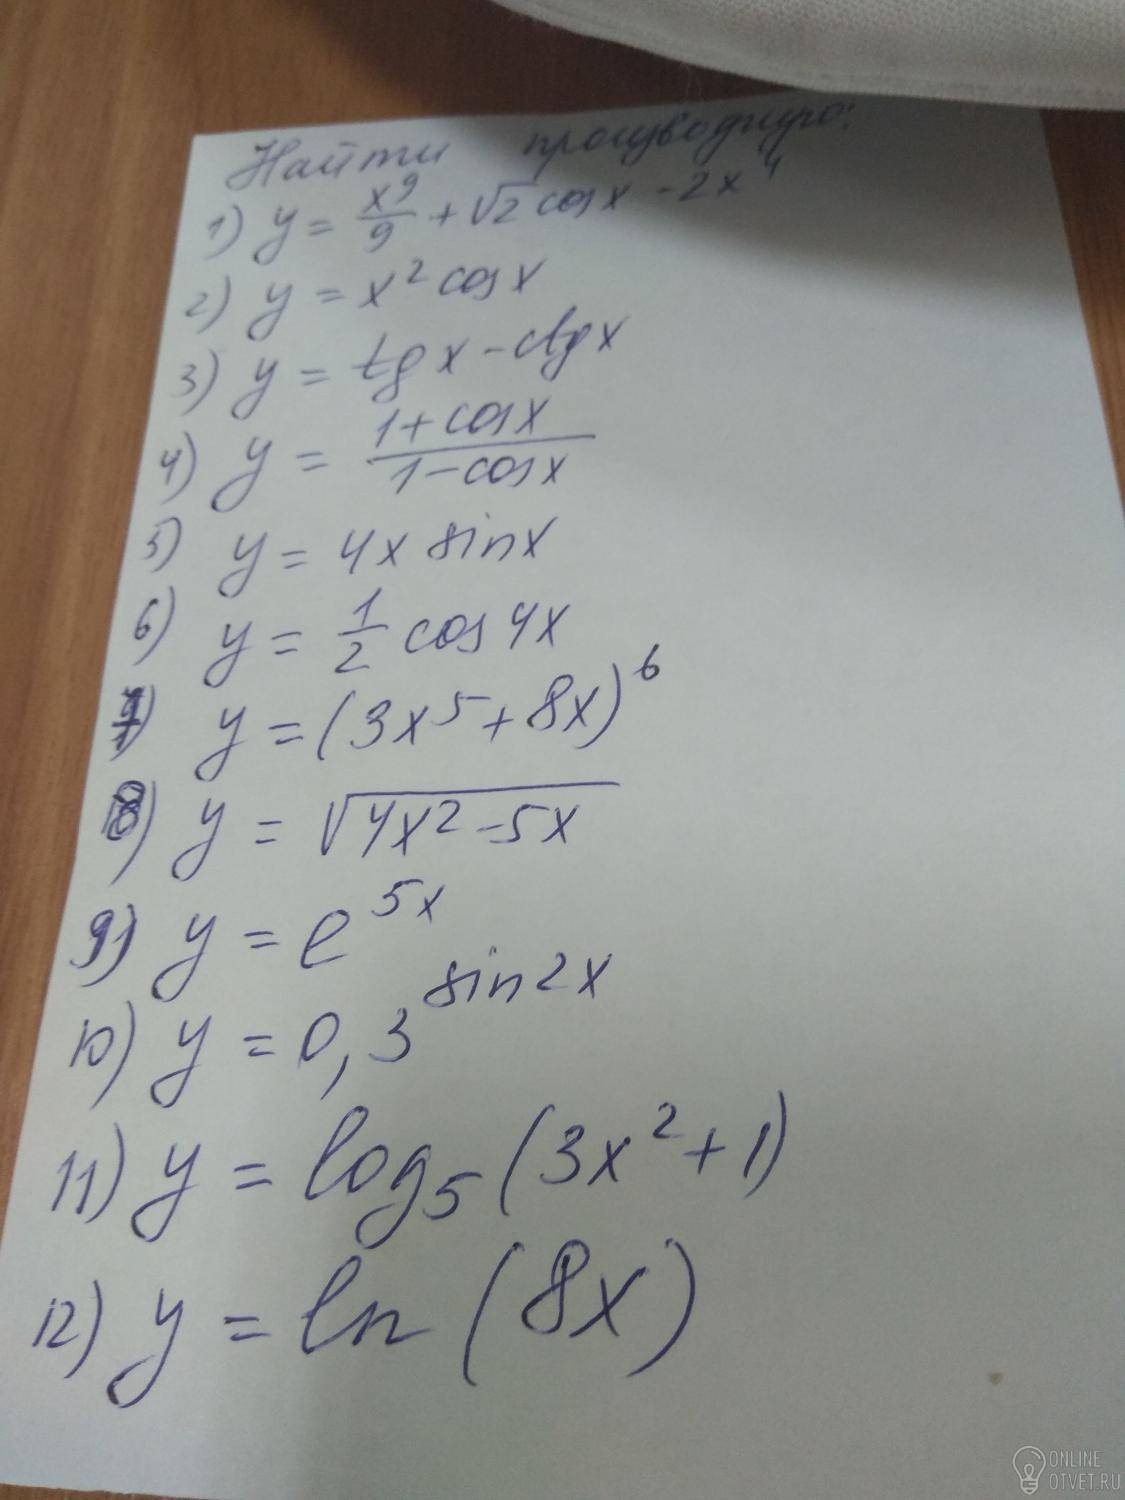 Найти производную:
1) y = x⁹/9 + √2 cosx - 2x⁴
2) y = x² cosx
3) y = tgx - ctgx
4) y = (1+cosx)/(1-cosx)
5) y = 4x sinx
6) y = 1/2 cos4x
7) y = (3x⁵ + 8x)⁶
8) y = √(4x² - 5x)
9) y = e^5x
10) y = 0,3^sin2x
11) y = log₅(3x² + 1)
12) y = ln(8x)
ONLINE
OTVET.RU